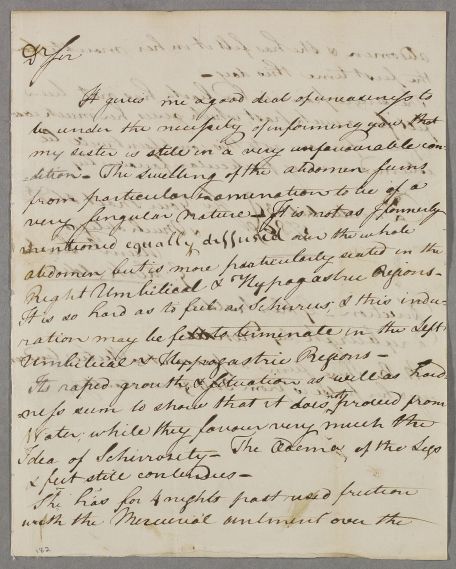 Dr Sir
It gives me a good deal of uneasiness to
be under the necessity of informing you that
my sister is still in a very unfavourable con-
dition - The swelling of the abdomen seems
from particular examination to be of a
very singular nature - It is not as I formerly
mentioned equally diffused over the whole
abdomen but is more particularly seated in the
Right Umbilical & Hypogastric Regions -
It is so hard as to feel as Schirrus, & this indu-
ration may be felt to terminate in the Left
Umbilical & Hypogastric Regions -
Its raped growth, & situation as well as hard-
ness seem to show that it does proceed from
Water, while they favour very much the
Idea of Schirrosity - The Œdema of the Legs
& feet still continues -
She has for 4 nights past used friction
with the Mercurial ointment over the
182